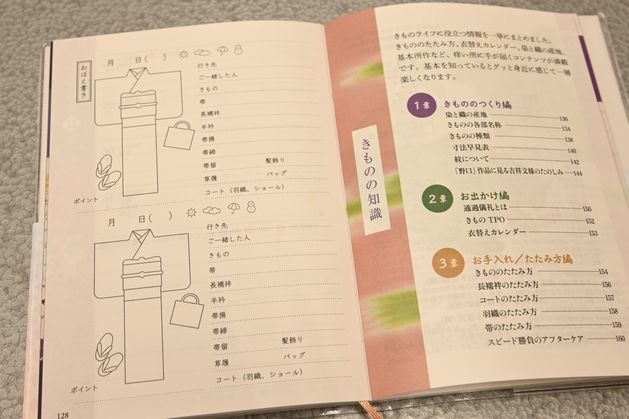 おぼえ書き
月 日( )
行き先
ご一緒した人
きもの
帯
長襦袢
半衿
帯揚
帯締
帯留 髪飾り
草履 バッグ
コート（羽織、ショール）
ポイント
月 日( )
行き先
ご一緒した人
きもの
帯
長襦袢
半衿
帯揚
帯締
帯留 髪飾り
草履 バッグ
コート（羽織、ショール）
ポイント
128
きものの知識
きものライフに役立つ情報を一挙にまとめました。
きもののたたみ方、衣替えカレンダー、染と織の産地、
基本所作など、痒い所に手が届くコンテンツが満載
です。基本を知っているとグッと身近に感じて一層
楽しくなります。
1章 きもののつくり編
染と織の産地 130
きものの各部名称 134
きものの種類 138
寸法早見表 140
紋について 142
「野口」作品に見る吉祥文様のたのしみ 144
2章 お出かけ編
通過儀礼とは 150
きものTPO 152
衣替えカレンダー 153
3章 お手入れ／たたみ方編
きもののたたみ方 154
長襦袢のたたみ方 156
コートのたたみ方 157
羽織のたたみ方 158
帯のたたみ方 159
スピード勝負のアフターケア 160